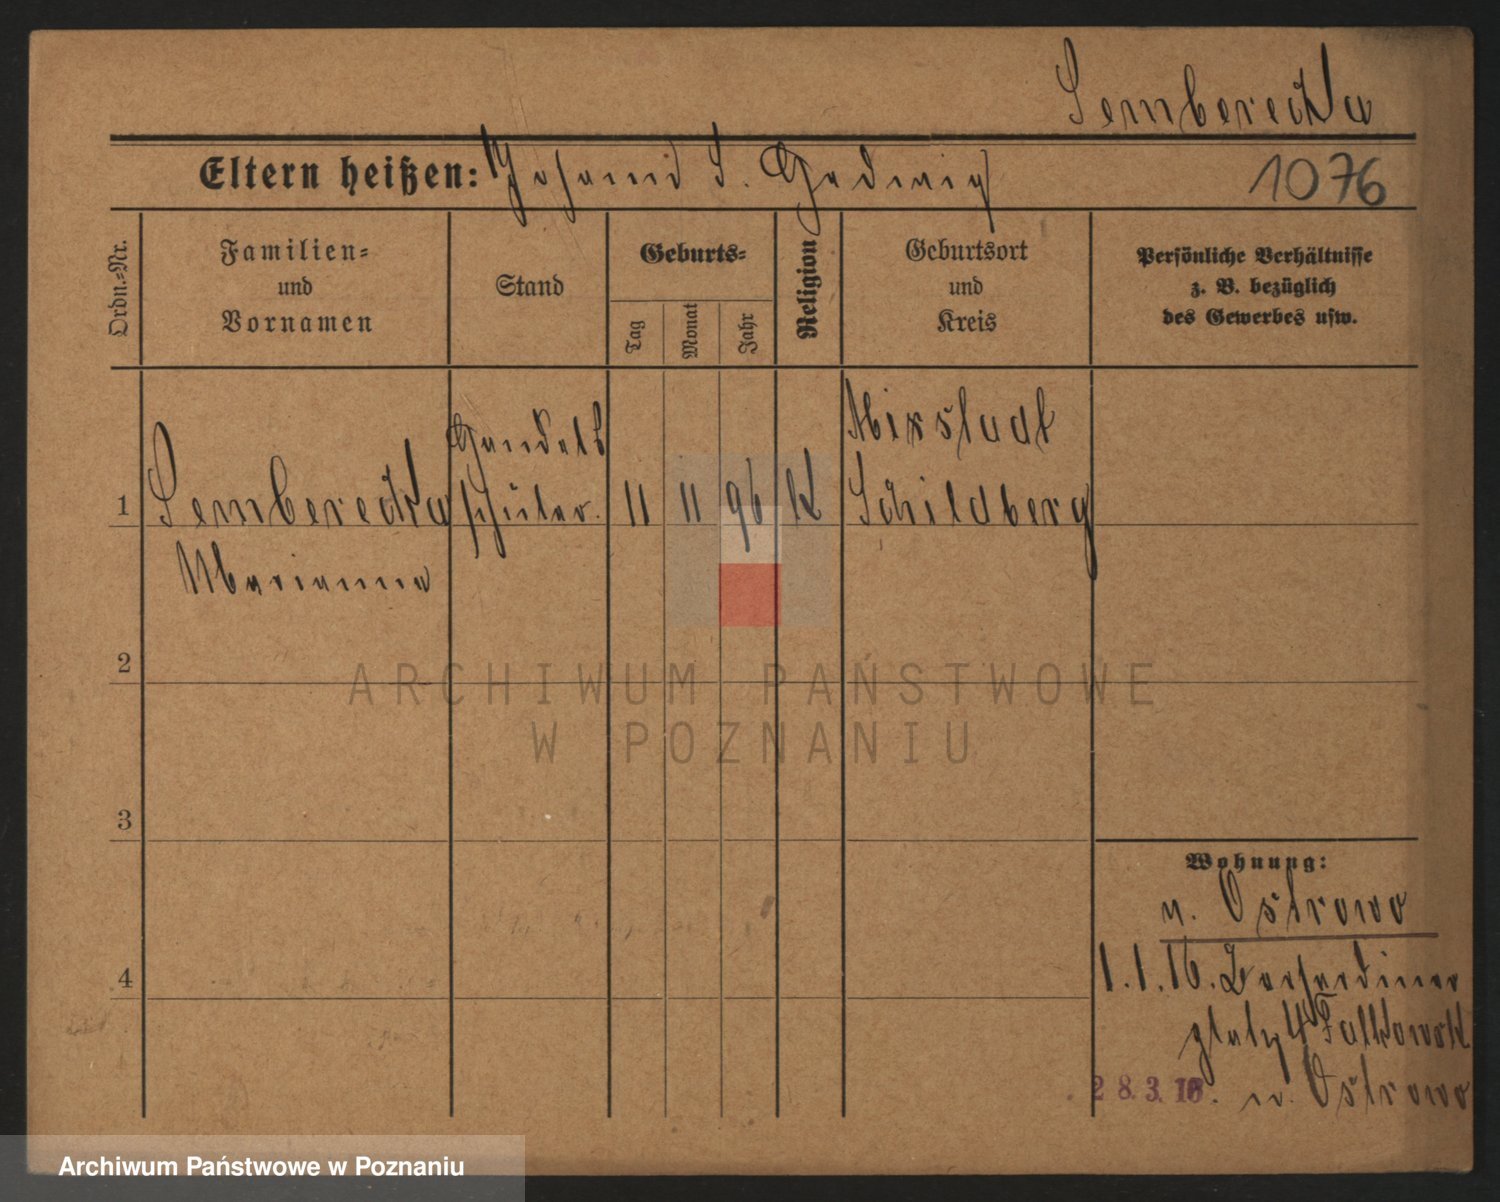 Sembereckа
Eltern heißen: Johann & Hedwig
1076
Ordn.-Nr.
Familien-
und
Vornamen
Stand
Geburts-
Tag
Monat
Jahr
Religion
Geburtsort
und
Kreis
Persönliche Verhältnisse
z. B. bezüglich
des Gewerbes usw.
Handels
schüler.
Mixstadt
1
Semberecka
11
11
96
K
Schildberg
Marianna
2
ARCHIWUM PAŃSTWOWE
W POZNANIU
3
Wohnung:
n. Ostrowo
4
1.1.16. Bernhardiner
platz 4 Falkowsk
28.3.16. n. Ostrowo
Archiwum Państwowe w Poznaniu